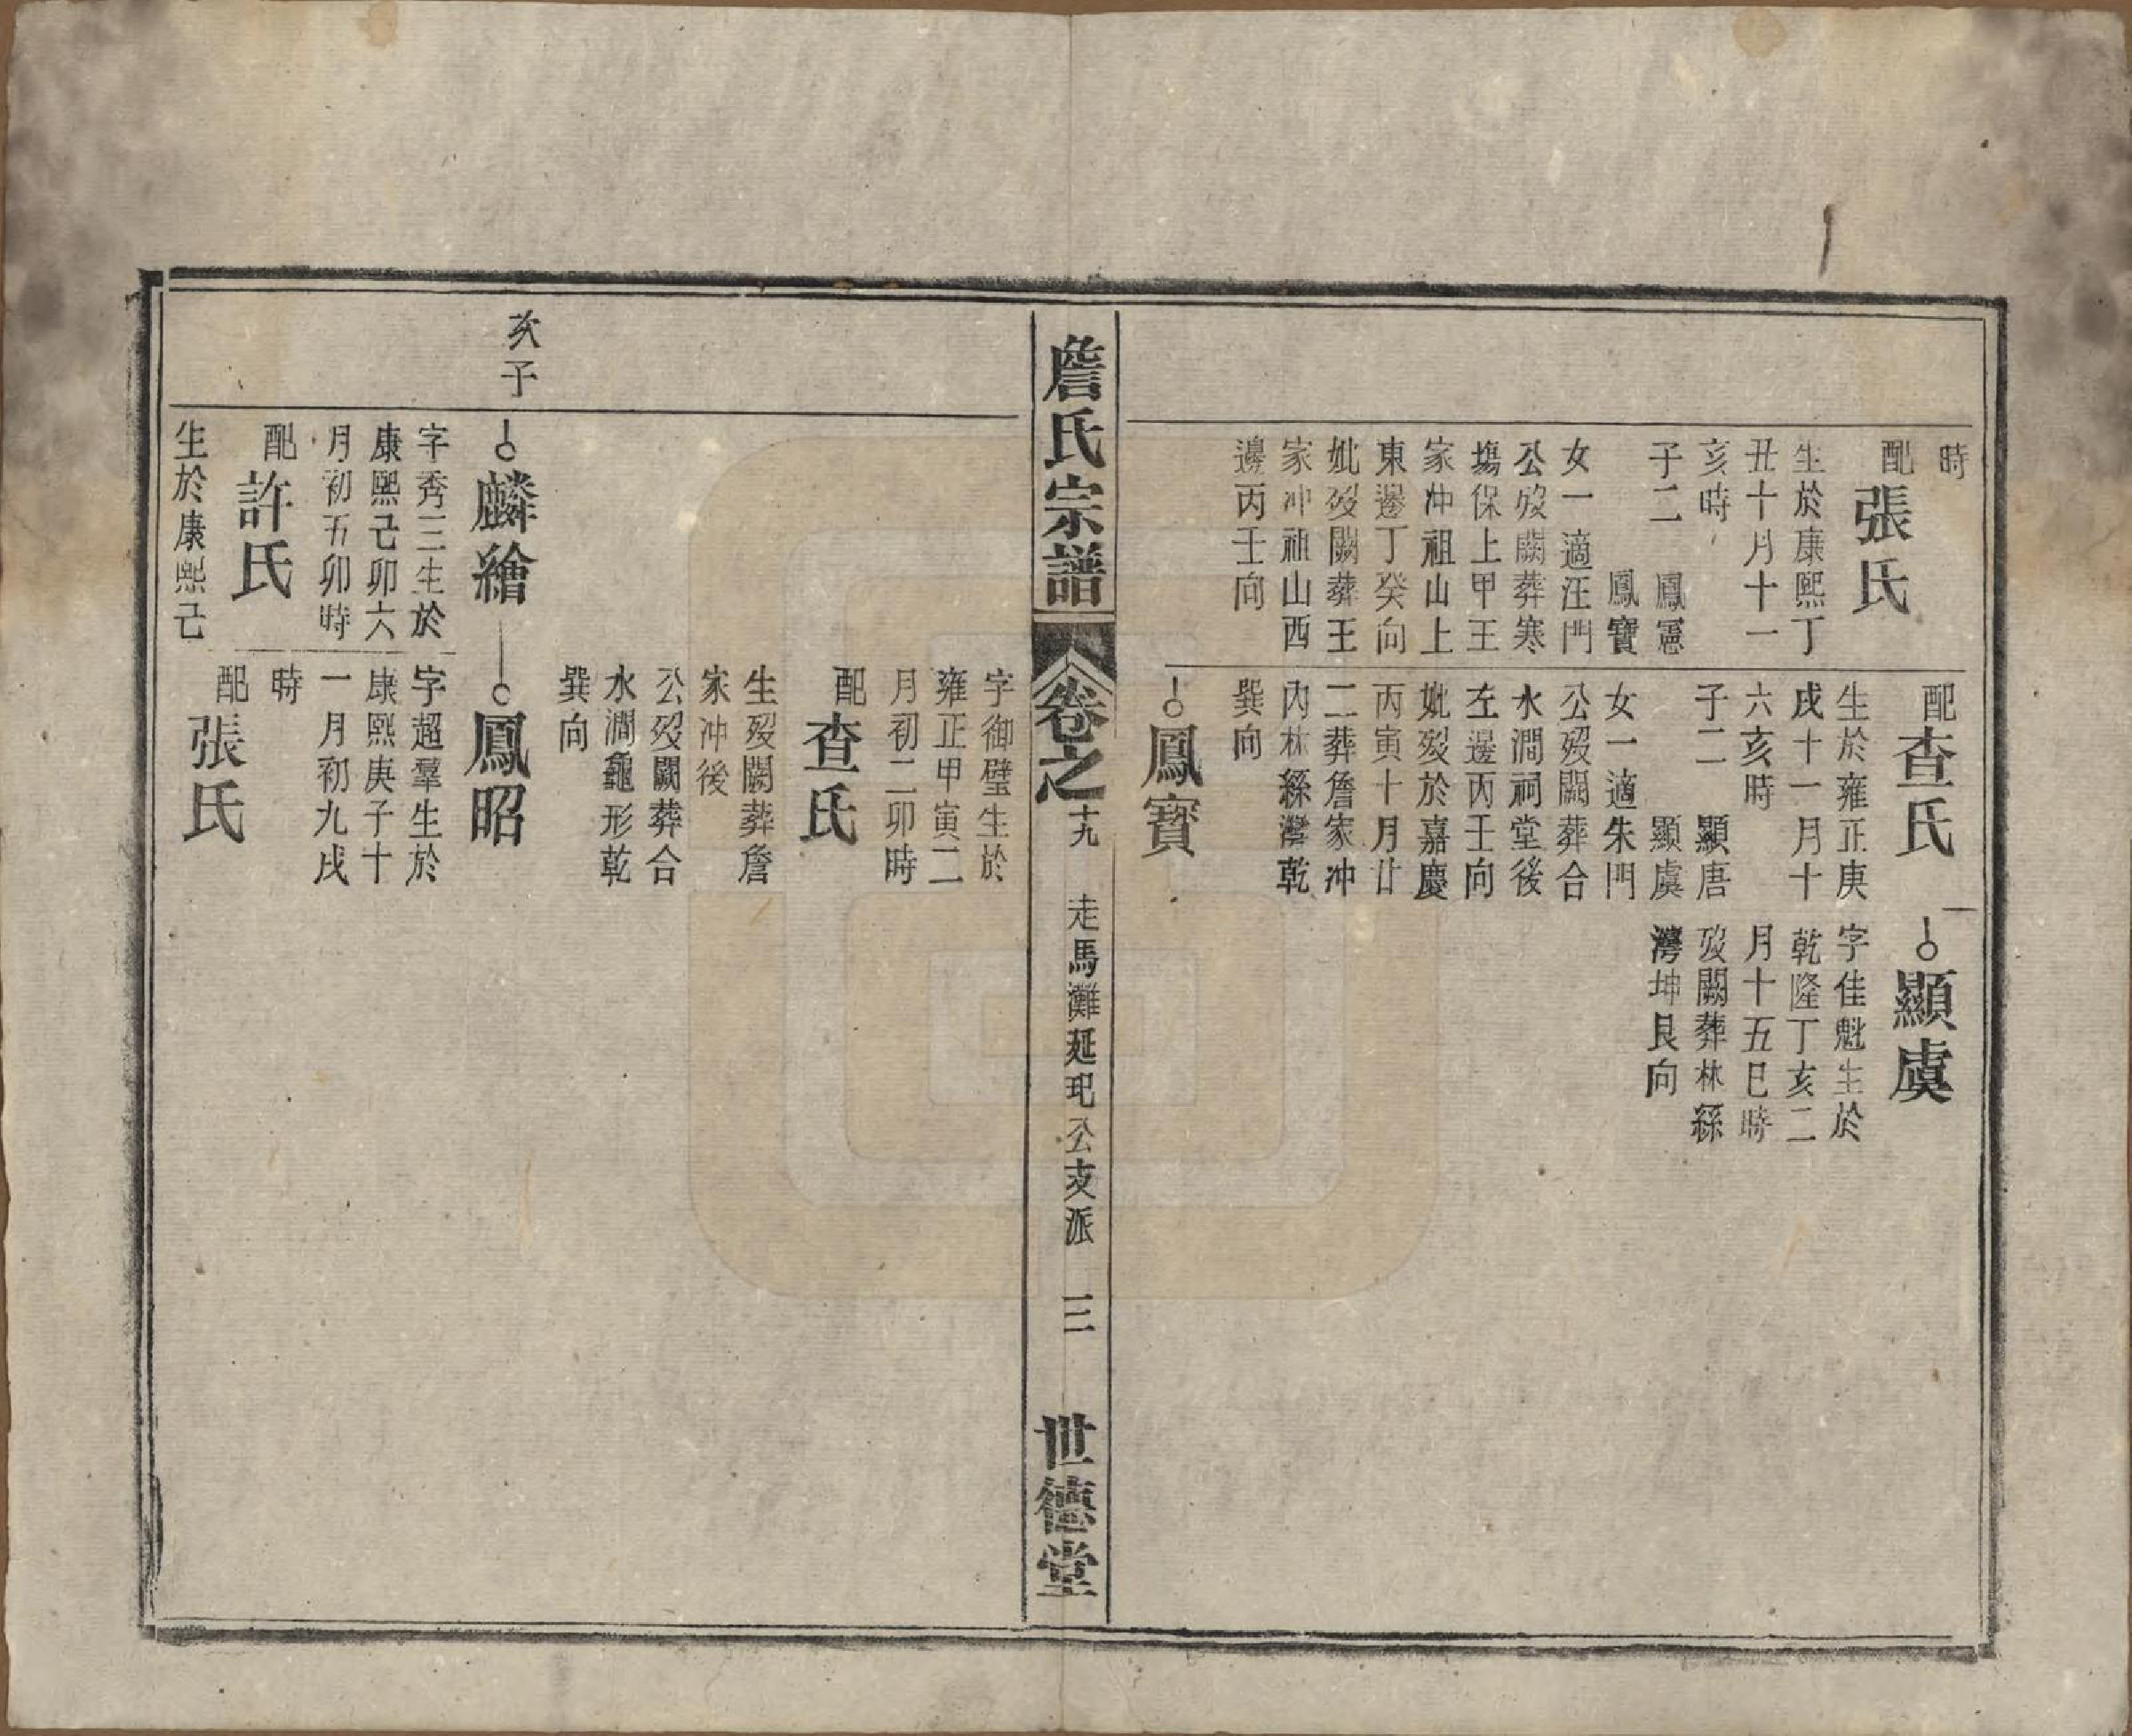 時
配張氏
生於康熙丁
丑十月十一
亥時
子二 鳳憲
鳳寶
女一適汪門
公歿闕葬寒
塢保上甲王
家冲祖山上
東邊丁癸向
妣歿闕葬王
家冲祖山西
邊丙壬向
配查氏
生於雍正庚
戌十一月十
六亥時
子二 顯唐
顯虞
女一適朱門
公歿闕葬合
水澗祠堂後
左邊丙壬向
妣歿於嘉慶
丙寅十月廿
二葬詹家冲
內林縣灣乾
巽向
鳳寶
顯虞
字佳魁生於
乾隆丁亥二
月十五巳時
歿闕葬林縣
灣坤艮向
詹氏宗譜
卷之十九
走馬灘延玘公支派
三
世德堂
字御璧生於
雍正甲寅二
月初二卯時
配查氏
生歿闕葬詹
家冲後
公歿闕葬合
水澗龜形乾
巽向
次子
麟繪
字秀三生於
康熙己卯六
月初五卯時
配許氏
生於康熙己
鳳昭
字超羣生於
康熙庚子十
一月初九戌
時
配張氏